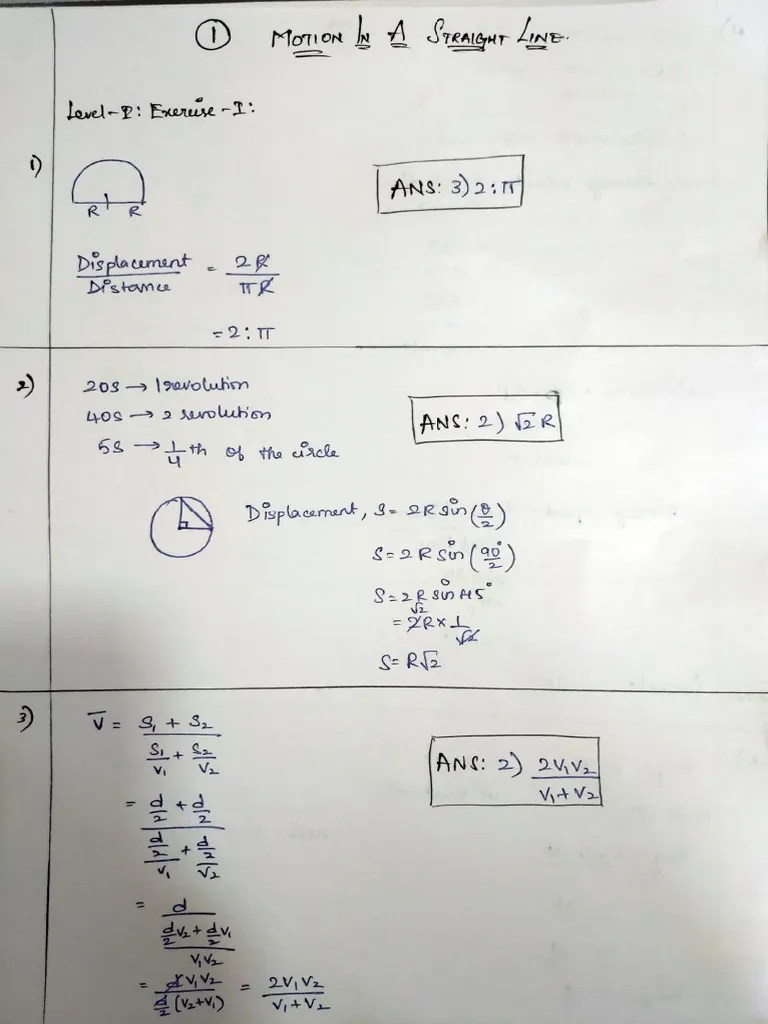 ① MOTION IN A STRAIGHT LINE.
Level-I: Exercise-I:
1)
R R
ANS: 3) 2:π
Displacement/Distance = 2R/πR
= 2:π
2) 20s → 1 revolution
40s → 2 revolution
5s → 1/4 th of the circle
ANS: 2) √2 R
Displacement, S = 2R sin(θ/2)
S = 2R sin(90°/2)
S = 2R sin 45°
= 2R × 1/√2
S = R√2
3) V̅ = (S₁ + S₂)/(S₁/V₁ + S₂/V₂)
ANS: 2) 2V₁V₂/(V₁ + V₂)
= (d/2 + d/2)/((d/2)/V₁ + (d/2)/V₂)
= d/((d/2 V₂ + d/2 V₁)/V₁V₂)
= dV₁V₂/(d/2 (V₂+V₁)) = 2V₁V₂/(V₁ + V₂)